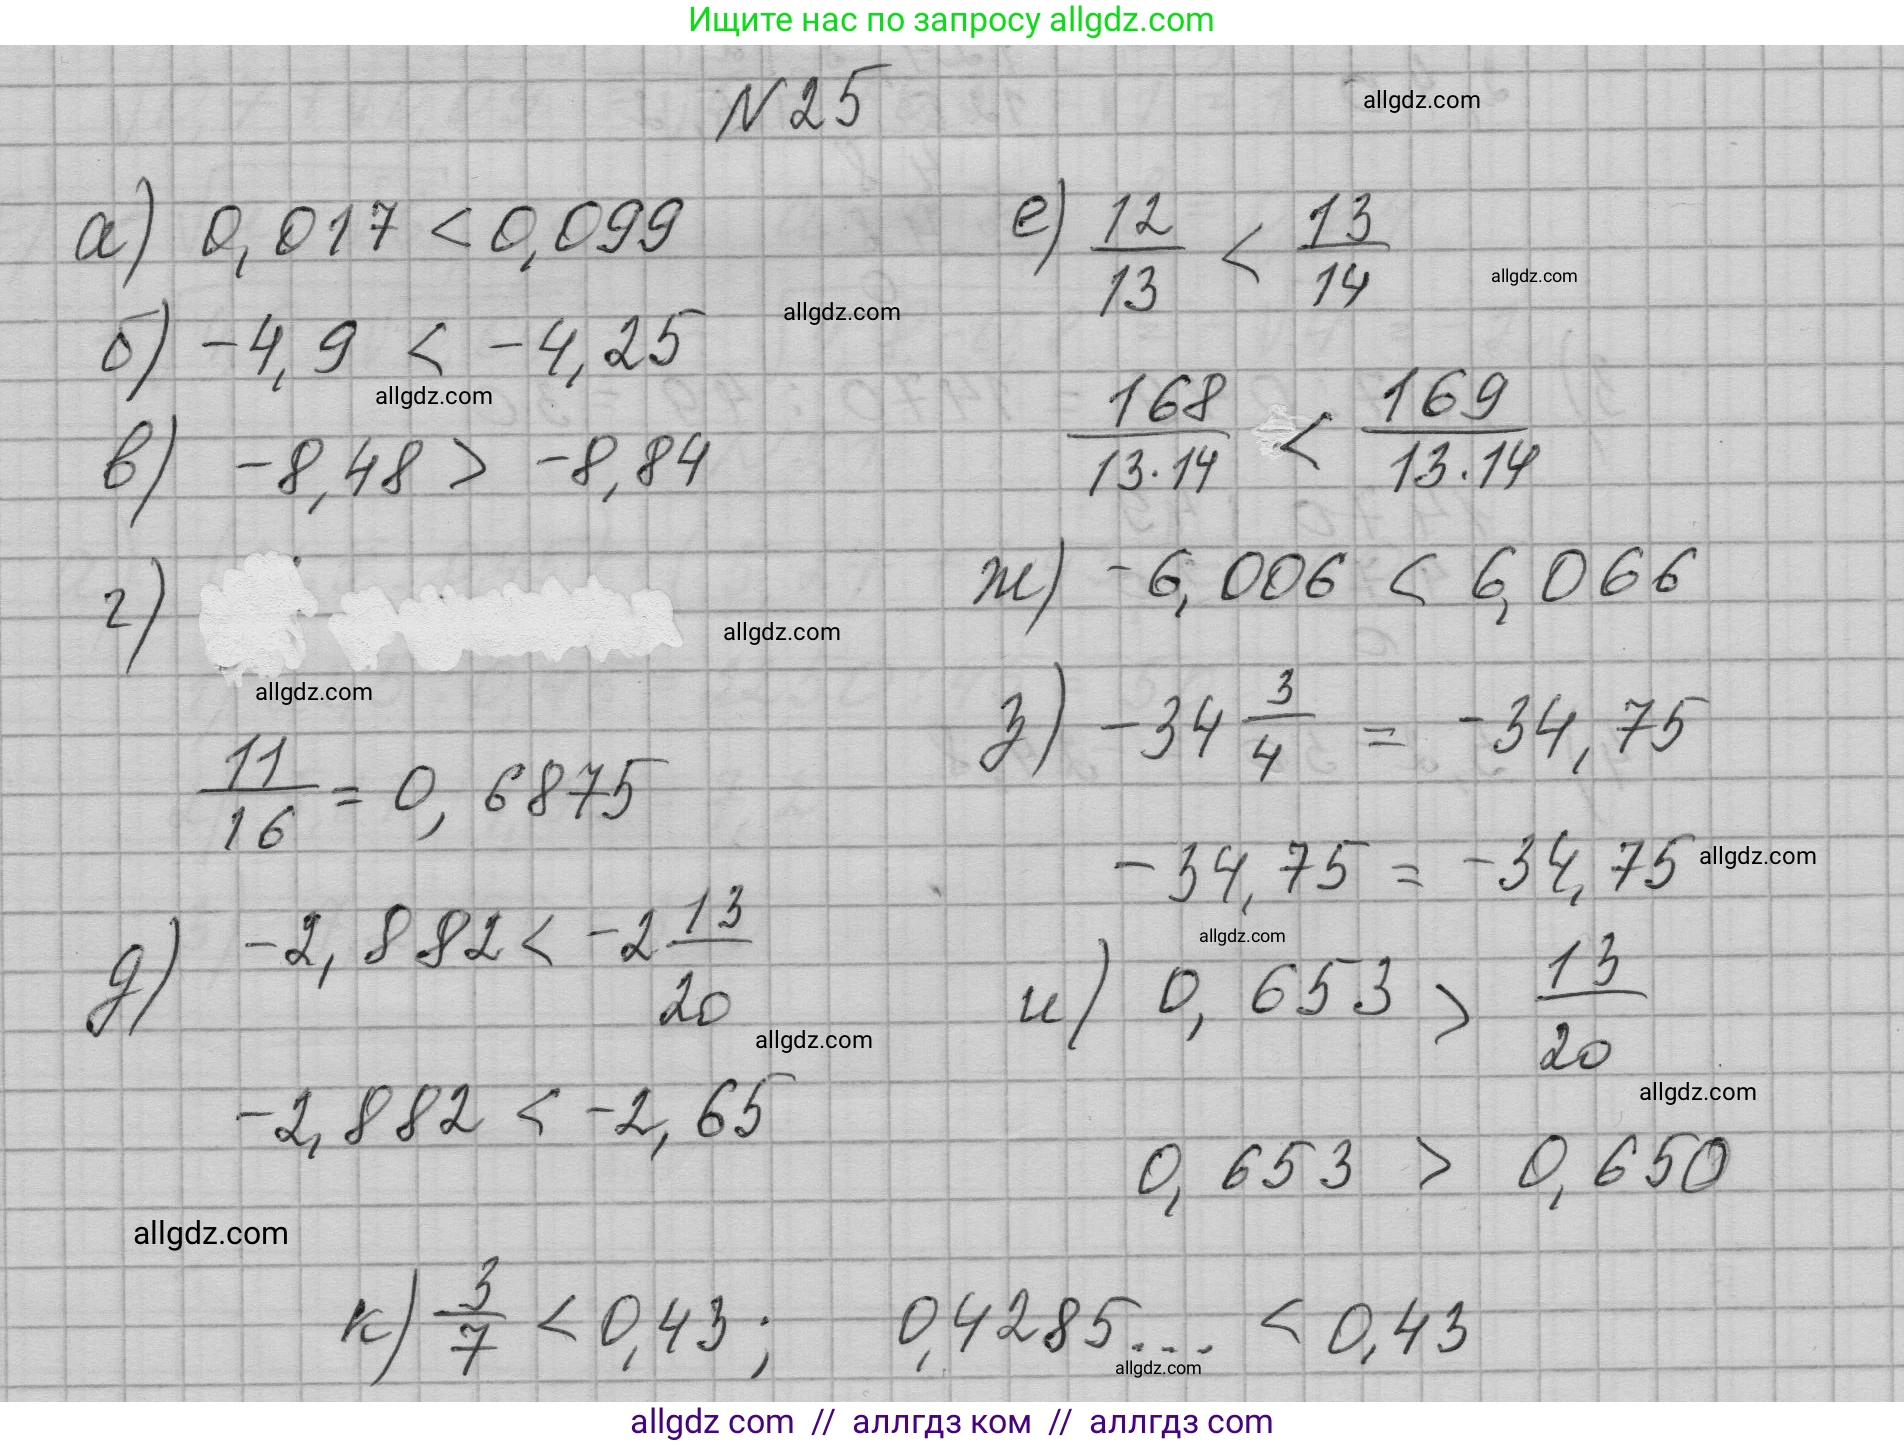 Ищите нас по запросу allgdz.com
N 25
allgdz.com
а) 0,017 < 0,099
б) -4,9 < -4,25
allgdz.com
allgdz.com
в) -8,48 > -8,84
г)
allgdz.com
allgdz.com
11/16 = 0,6875
д) -2,882 < -2 13/20
allgdz.com
-2,882 < -2,65
allgdz.com
е) 12/13 < 13/14
allgdz.com
168/13·14 < 169/13·14
ж) -6,006 < 6,066
з) -34 3/4 = -34,75
-34,75 = -34,75
allgdz.com
allgdz.com
и) 0,653 > 13/20
allgdz.com
0,653 > 0,650
к) 3/7 < 0,43; 0,4285... < 0,43
allgdz.com
allgdz com // аллгдз ком // аллгдз com